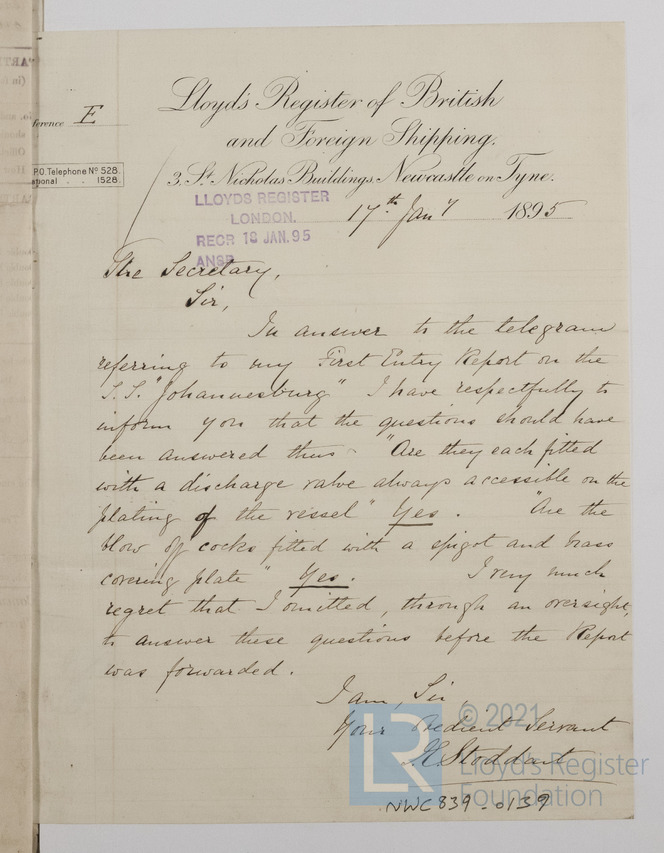 Lloyd's Register of British
and Foreign Shipping.
ference E
P.O. Telephone No 528.
ational . . 1528.
3, St Nicholas Buildings, Newcastle on Tyne.
LLOYDS REGISTER
LONDON.
RECR 18 JAN. 95
ANSR
17th Jany 1895
The Secretary,
Sir,
In answer to the telegram
referring to my First Entry Report on the
S.S. "Johannesburg" I have respectfully to
inform you that the questions should have
been answered thus - "Are they each fitted
with a discharge valve always accessible on the
plating of the vessel" Yes. "Are the
blow off cocks fitted with a spigot and brass
covering plate" Yes. I very much
regret that I omitted, through an oversight,
to answer these questions before the Report
was forwarded.
I am, Sir,
Your Obedient Servant
Stoddart
NWC839-0139
LR
© 2021
Lloyd's Register
Foundation